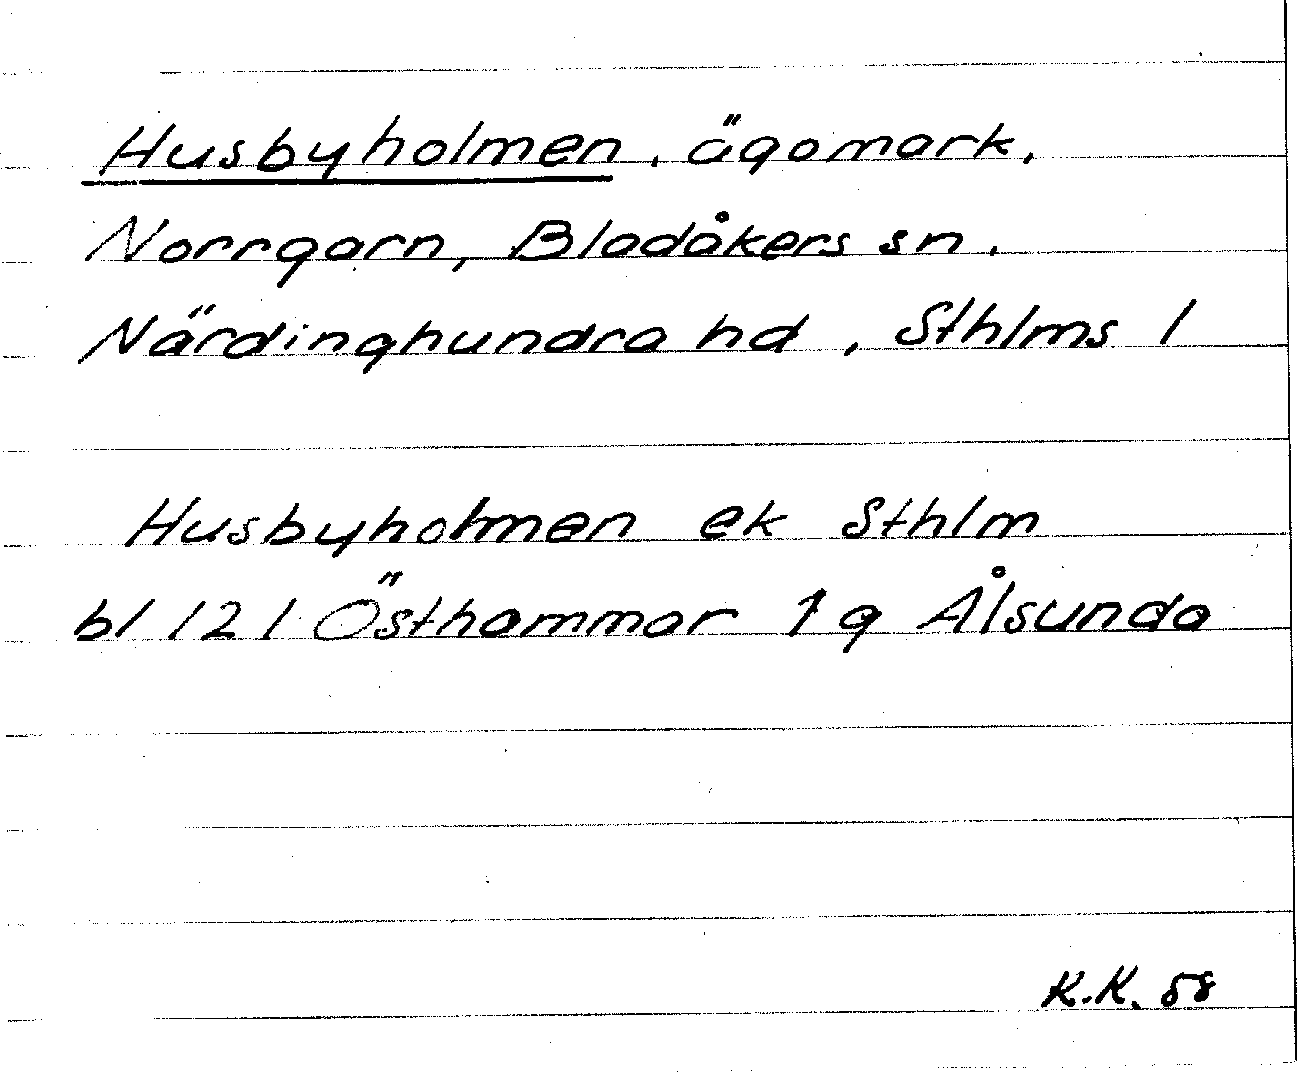 Husbyholmen, ägomark,
Norrgarn, Bladåkers sn,
Närdinghundra hd, Sthlms l
Husbyholmen ek Sthlm
bl 121 Östhammar 1 g Ålsunda
K.K. 58